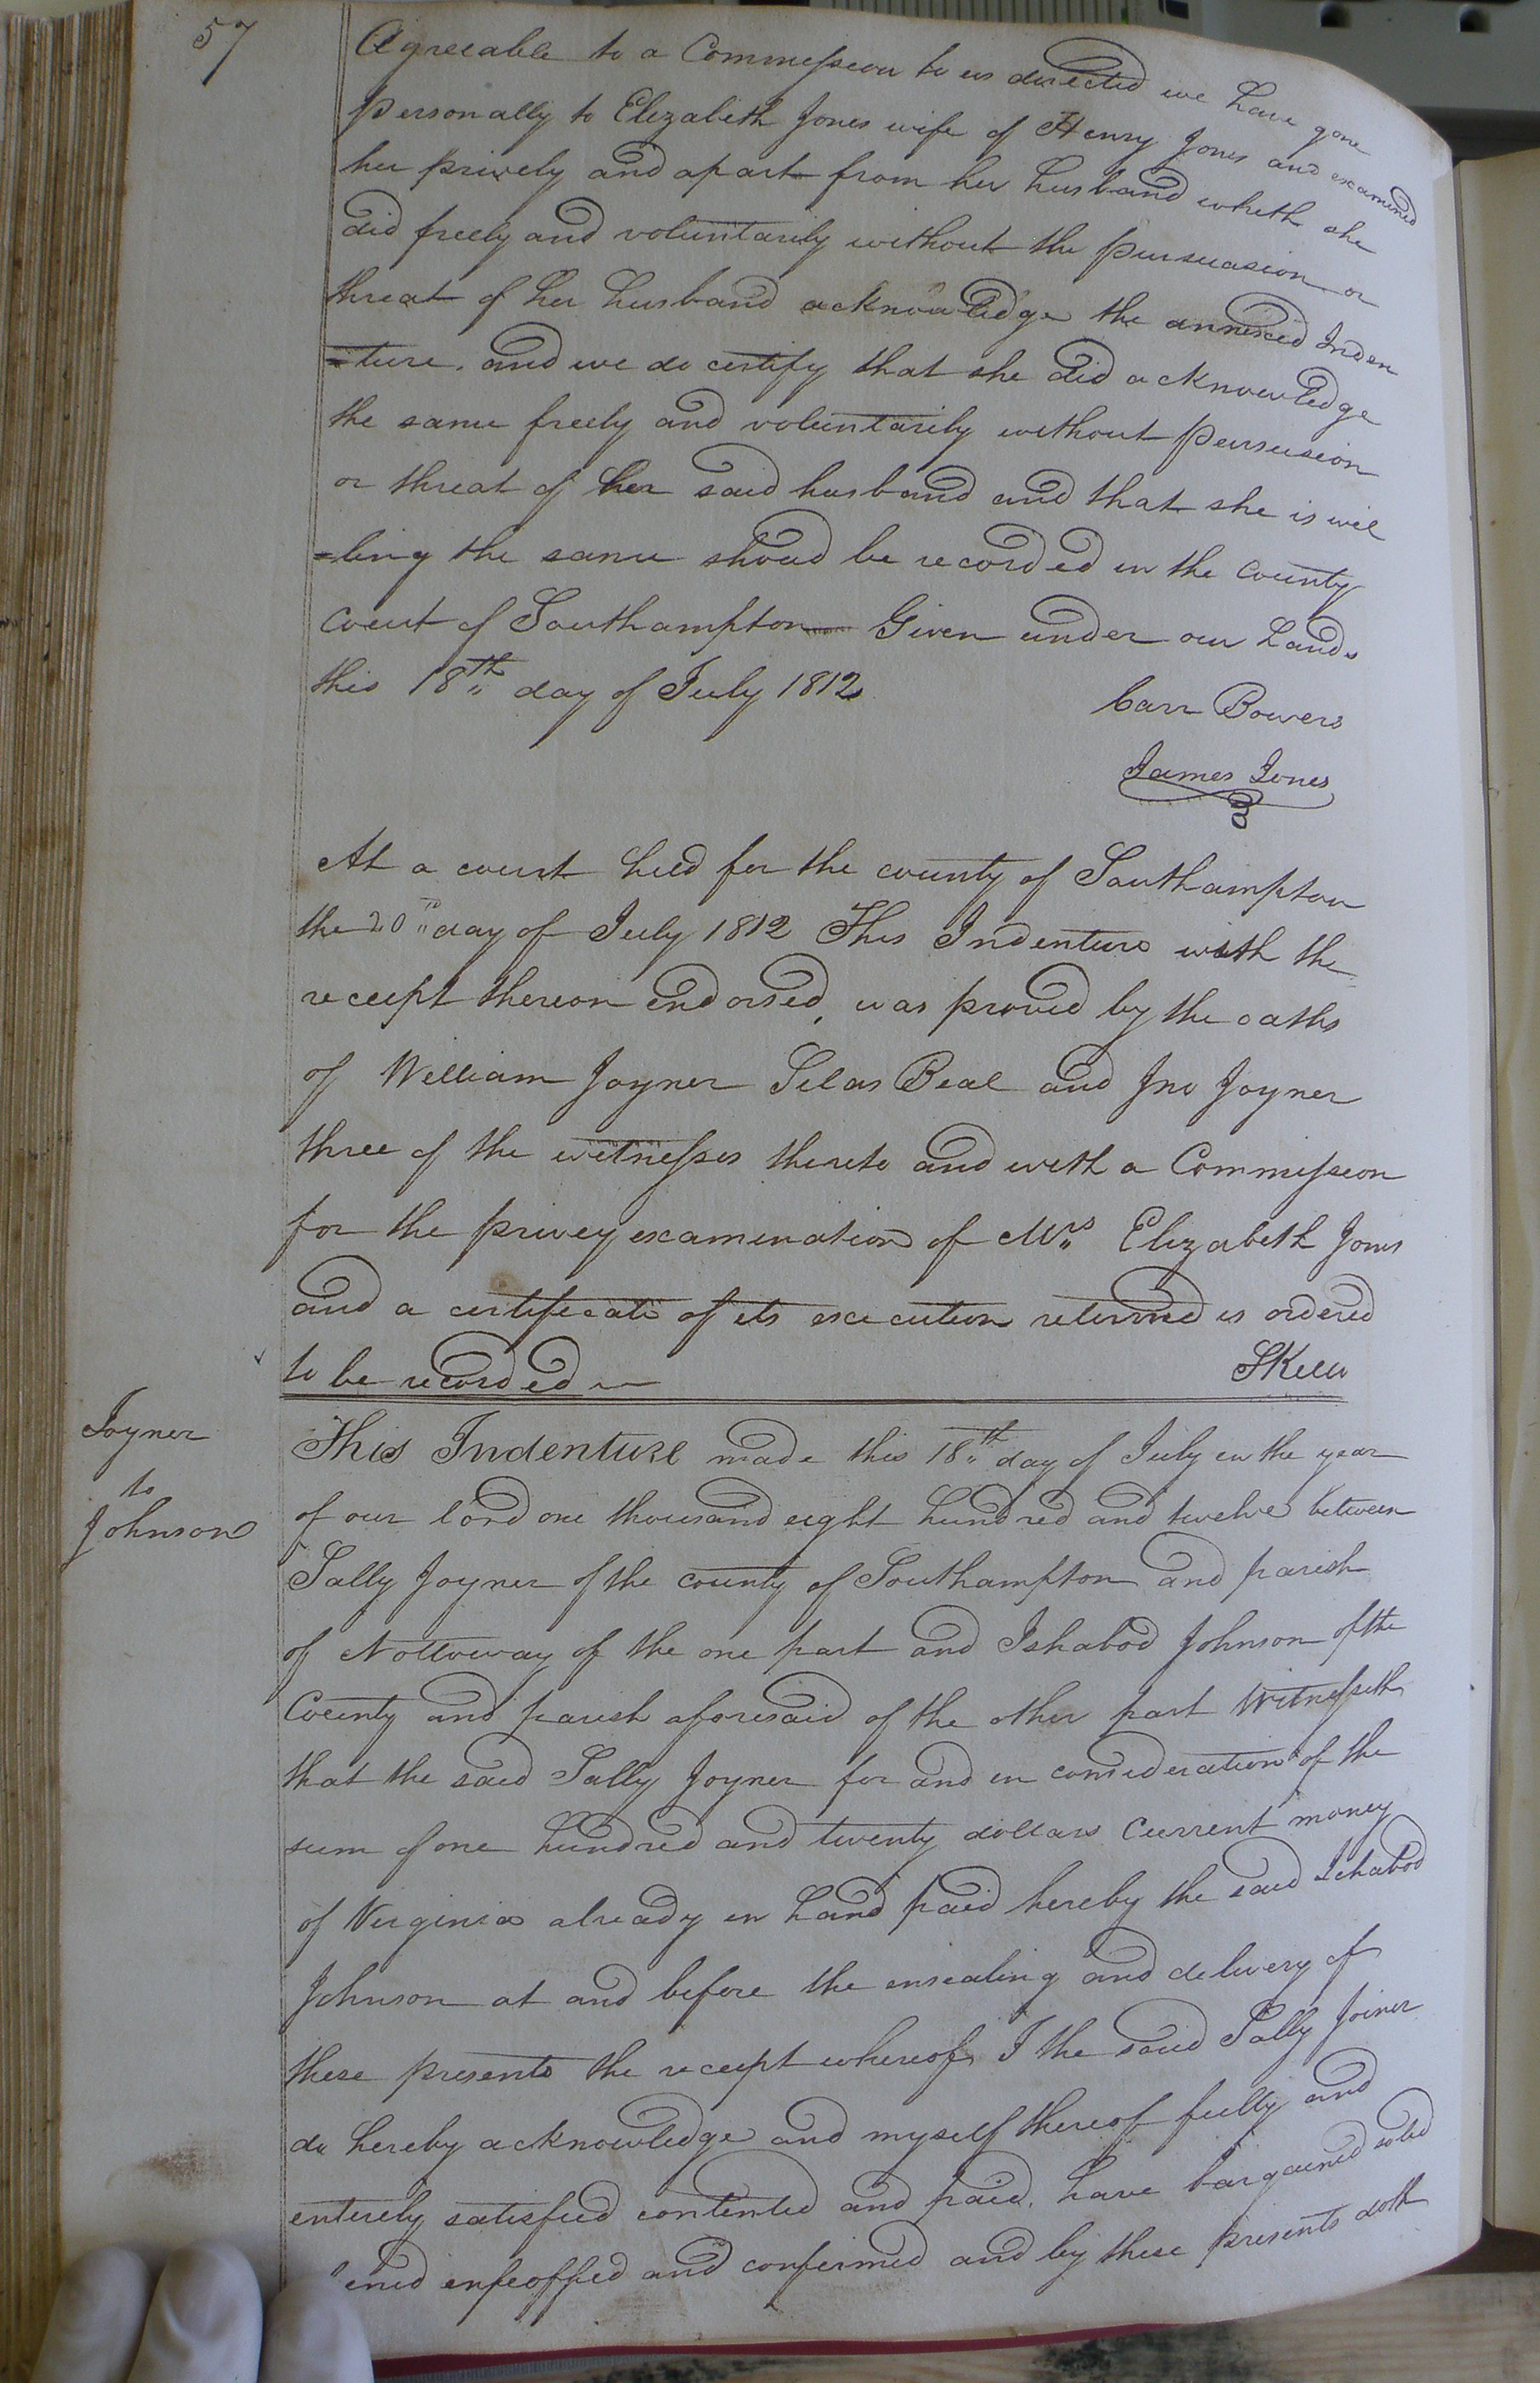 57
Agreeable to a Commission to us directed we have gone
personally to Elizabeth Jones wife of Henry Jones and examined
her prively and apart from her husband wheth she
did freely and voluntarily without the pursuasion or
threat of her husband acknowledge the annexed Inden
=ture. and we do certify that she did acknowledge
the same freely and voluntarily without persusion
or threat of her said husband and that she is wil
=ling the same shoud be recorded in the county
court of Southampton Given under our hands
this 18th day of July 1812
Carr Bowers
James Jones
At a court held for the county of Southampton
the 20th day of July 1812 This Indenture with the
receipt thereon endorsed, was proved by the oaths
of William Joyner Silas Beal and Jno Joyner
three of the witnesses thereto and with a Commission
for the privey examination of Mrs Elizabeth Jones
and a certificate of its execution returned is ordered
to be recorded
Joyner
to
Johnson
This Indenture made this 18th day of July in the year
of our lord one thousand eight hundred and twelve between
Sally Joyner of the county of Southampton and parish
of Nottoway of the one part and Ishabod Johnson of the
County and parish aforesaid of the other part Witnesseth
that the said Sally Joyner for and in consideration of the
sum of one hundred and twenty dollars Current money
of Virginia already in hand paid hereby the said Ichabod
Johnson at and before the ensealing and delivery of
these presents the receipt whereof I the said Sally Joiner
do hereby acknowledge and myself thereof fully and
enterely satisfied contented and paid. have bargained sold
enfeoffed and confirmed and by these presents doth